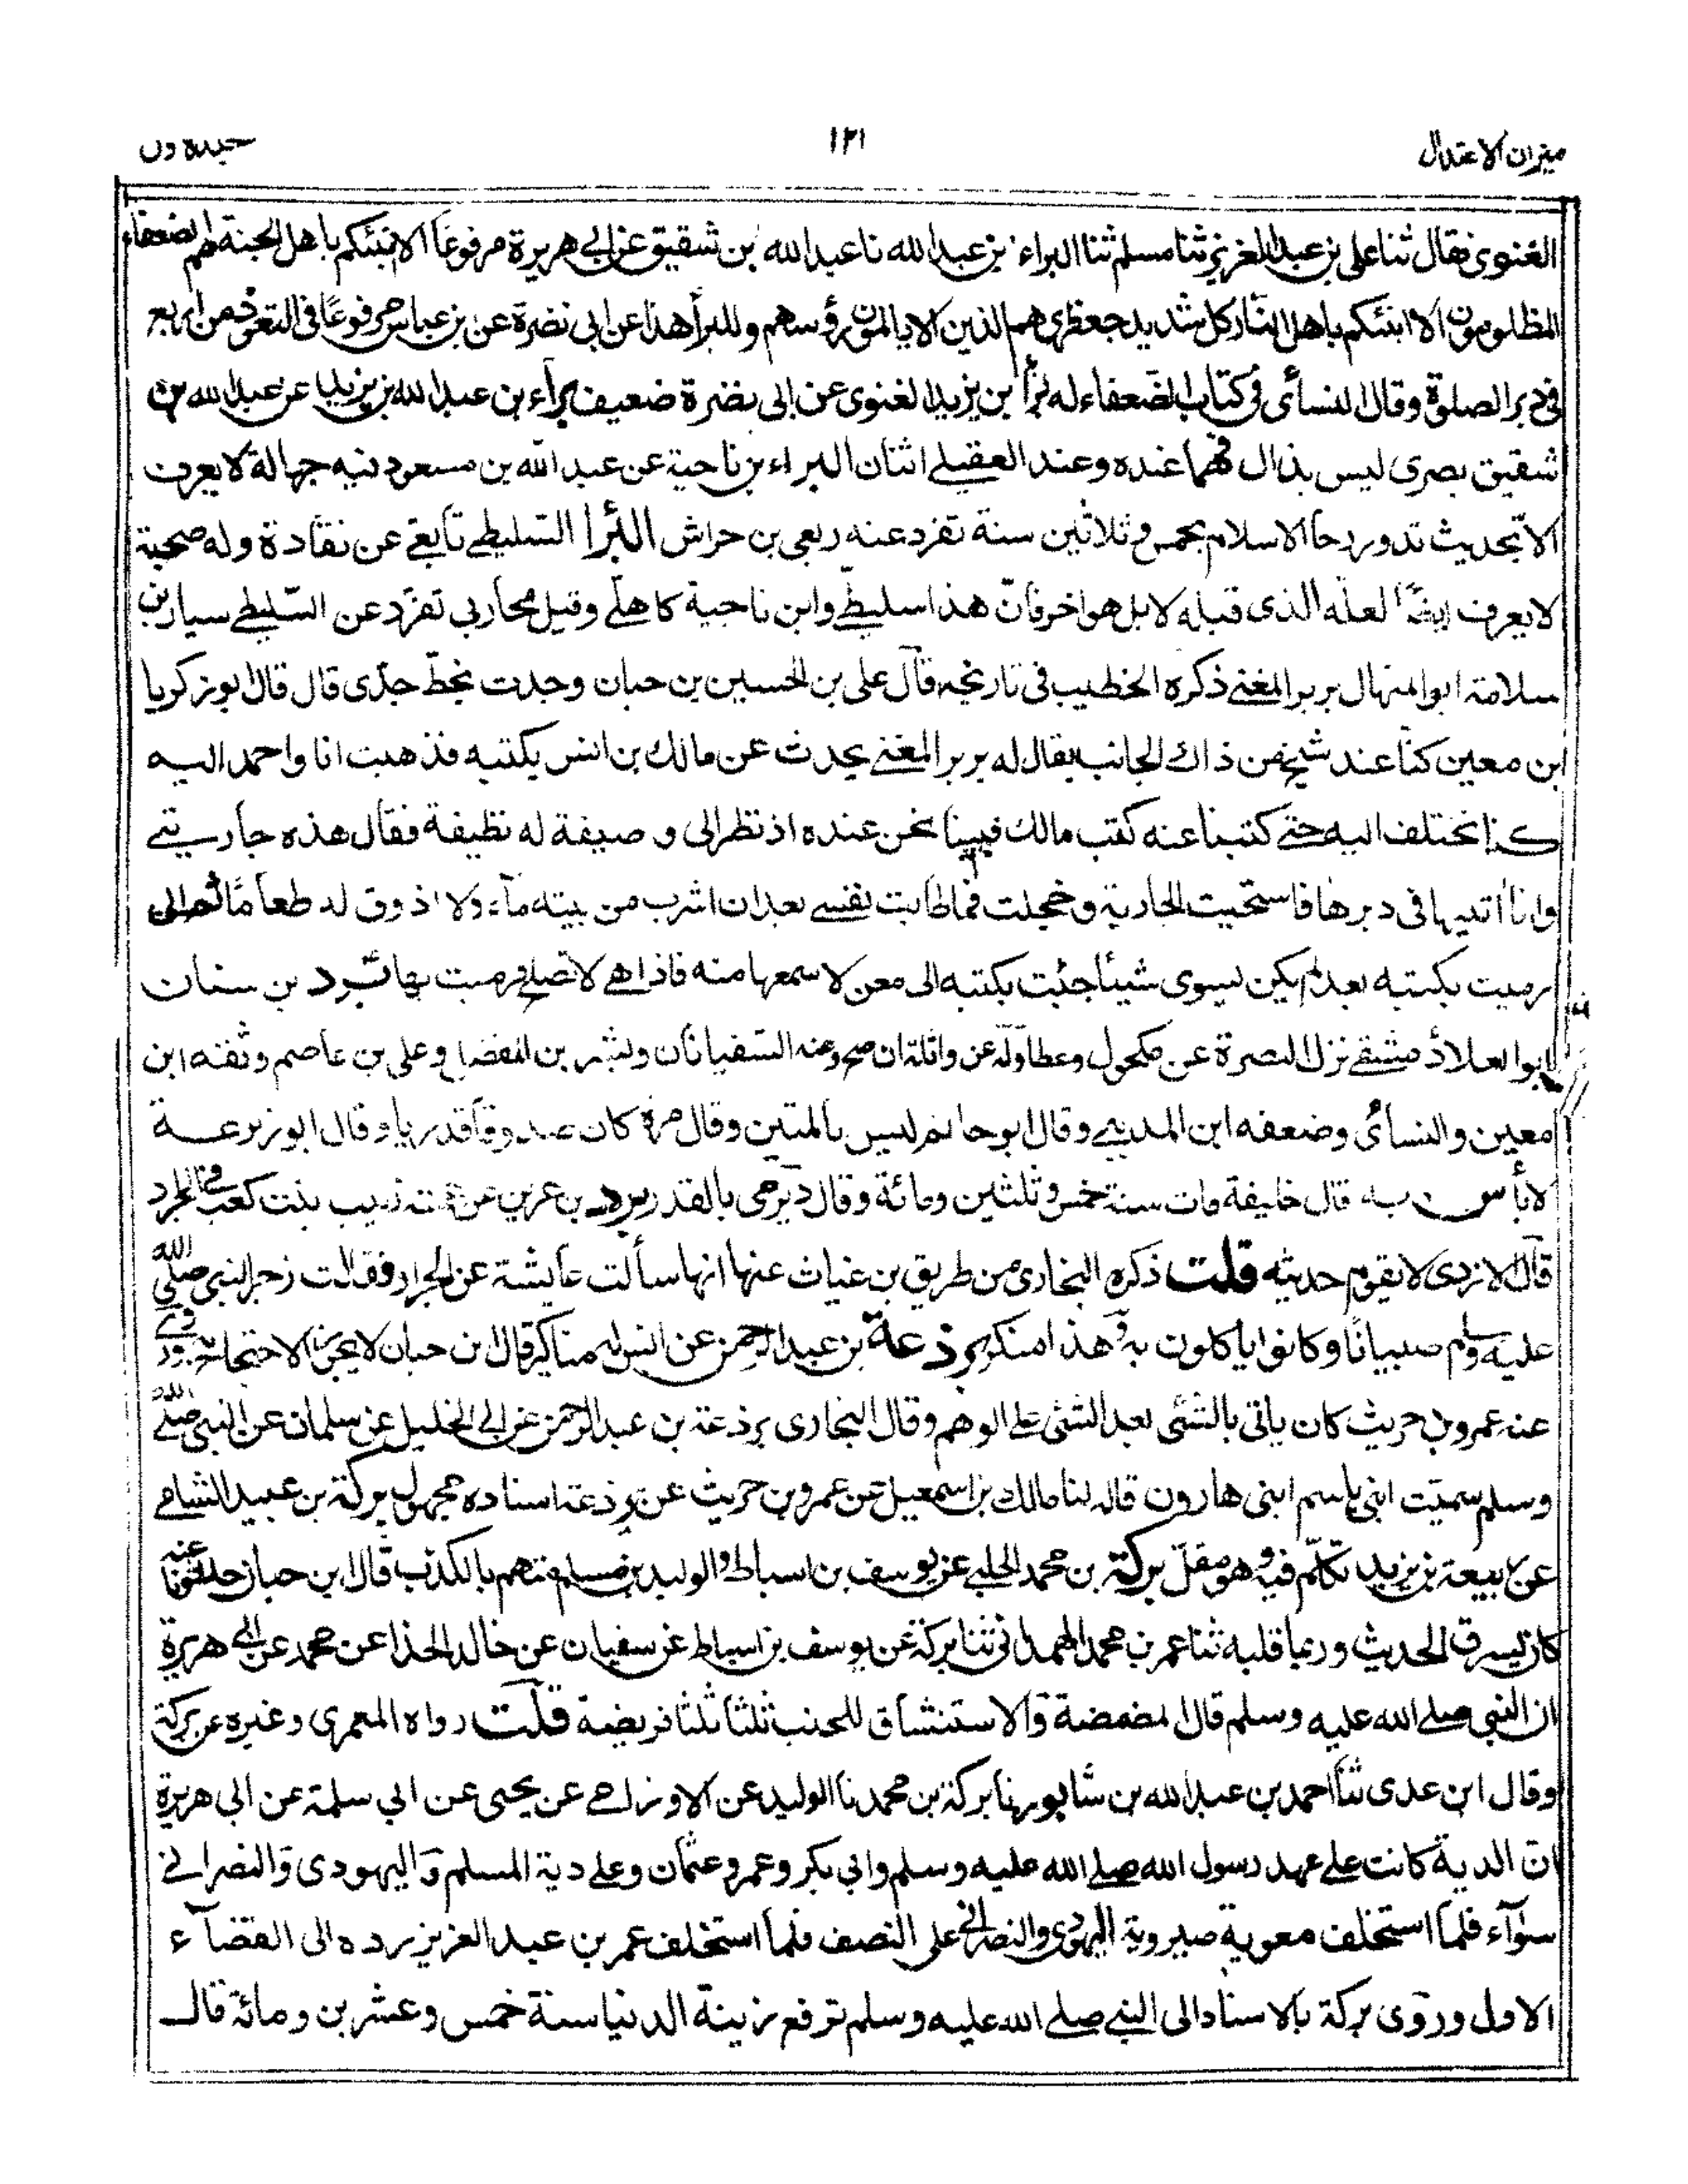 ميزان الاعتدال
١٢١
الغنوى فقال ثنا على بن عبد العزيز ثنا مسلم ثنا البراء بن عبد الله نا عبد الله بن شقيق عن ابى هريرة مرفوعًا الا انبئكم باهل الجنة هم الضعفاء
المظلومون الا انبئكم باهل النار كل شديد جعظرى هم الذين لا يالمون رؤسهم وللبرأ هذا عن ابى نضرة عن بن عباس مرفوعًا فى التعوذ من اربع
فى دبر الصلوة وقال النسائى فى كتاب الضعفاء له برأ بن يزيد الغنوى عن ابى نضرة ضعيف براء بن عبد الله بن يزيد عن عبد الله بن
شقيق بصرى ليس بذاك فهما عنده وعند العقيلے اثنان البراء بن ناحية عن عبد الله بن مسعود فيه جهالة لا يعرف
الا بحديث تدور رحا الاسلام بخمس وثلاثين سنة تفرد عنه ربعى بن حراش البُرا السّليطے تابعے عن نقادة وله صحبة
لا يعرف ايضًا لعله الذى قبله لا بل هو اخر فان هذا سليطے وابن ناحية كاهلے وقيل محاربي تفرّد عن السّليطے سيار بن
سلامة ابو المنهال بربر المغنے ذكره الخطيب فى تاريخه قال على بن الحسين بن حبان وجدت بخطّ جدّى قال قال ابو زكريا
ابن معين كنّا عند شيخ من ذاك الجانب يقال له بربر المغنے يحدث عن مالك بن انس يكتبه فذهبت انا واحمد اليه
كنا نختلف اليه حتے كتبنا عنه كتب مالك فبينا نحن عنده اذ نظر الى وصيفة له نظيفة فقال هذه جاريتے
وانا اٰتيها فى دبرها فاستحيت الجارية وخجلت فما طابت نفسے بعد ان اشرب من بيته ماء ولا اذوق له طعامًا ثم انى
رميت بكتبه بعد لم يكن يسوى شيئًا جئت بكتبه الى معن لاسمعها منه فاذا هے لا تصلح فرميت بها بُرد بن سنان
ابو العلاء دمشقے نزل البصرة عن مكحول وعطا وله عن واثلة ان صح وعنه السّفيانان وبشر بن المفضل وعلى بن عاصم وثقه ابن
معين والنسائى وضعفه ابن المدينے وقال ابو حاتم ليس بالمتين وقال مرة كان صدوقًا قدريا وقال ابو زرعة
لا بأس به قال خليفة مات سنة خمس وثلثين ومائة وقال د يرمى بالقدر برد بن عرين عن عمته زينب بنت كعب فى الجراد
قال الازدى لا يقوم حديثه قلت ذكره البخارى من طريق بن غياث عنها انها سألت عايشة عن الجراد فقالت زجر النبى صلى الله
عليه وسلم صبيانًا وكانوا ياكلون به فهذا منكر برذعة بن عبد الرحمن عن انس له مناكير قال ابن حبان لا يجوز الاحتجاج به روى
عنه عمرو بن حريث كان ياتى بالشئى بعد الشئى علے الوهم وقال البخارى برذعة بن عبد الرحمن عن ابى الخليل عن سلمان عن النبى صلے الله
وسلم سميّت ابنى باسم ابنى هارون قاله لنا مالك بن اسمعيل عن عمرو بن حريث عن برذعة اسناده مجهول بركة بن عبيد الشامے
عن ربيعة بن يزيد تكلّم فيه وهو مقلّ بركة بن محمد الحلبے عن يوسف بن اسباط والوليد بن مسلم متهم بالكذب قال ابن حبان حدثونا عنه
كان يسرق الحديث وربما قلبه ثنا عمر بن محمد الهمدانى ثنا بركة عن يوسف بن اسباط عن سفيان عن خالد الحذا عن محمد عن ابى هريرة
ان النبى صلے الله عليه وسلم قال المضمضة والاستنشاق للجنب ثلثًا ثلثًا فريضة قلت رواه المعمرى وغيره عن بركة
وقال ابن عدى ثنا احمد بن عبد الله بن شابور نا بركة بن محمد نا الوليد عن الاوزاعے عن يحيى عن ابي سلمة عن ابى هريرة
ان الدية كانت علے عهد رسول الله صلے الله عليه وسلم وابى بكر وعمر وعثمان وعلے دية المسلم واليهودى والنصرانے
سوٰآء فلمّا استخلف معوية صير دية اليهودى والنصرانى على النصف فلما استخلف عمر بن عبد العزيز رده الى القضآء
الاول وروى بركة بالاسناد الى النبے صلے الله عليه وسلم ترفع زينة الدنيا سنة خمس وعشرين ومائة قال